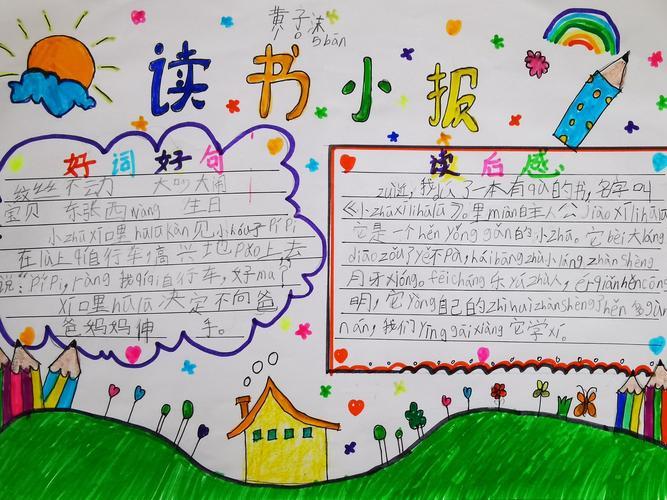 黄子沐
5bān
读书小报
好词好句
纹丝不动 大吵大闹
宝贝 东张西wàng 生日
小zhū xī哩hūlū kàn见小hóuzi pípí
在lù上qí自行车,高兴地pǎo上去
说:"pípí,ràng我qíqí自行车,好ma?"
xī哩hūlū决定不向爸
爸妈妈伸 手。
读后感
zuì近,我dú了一本有qù的书,名字叫
《小zhū xī lì hū lū》。里miàn的主人公jiào xī lì hū lū
它是一个hěn yǒng gǎn的小zhū。它bèi大láng
diāo zǒu了yě不pà,hái bāng zhù小láng zhàn shèng
月牙xióng。fēi cháng乐yú zhù人,ér qiě hěn cōng
明,它yòng自己的zhì huì zhàn shèng了hěn多kùn
nán,我们yīng gāi xiàng它学xí。